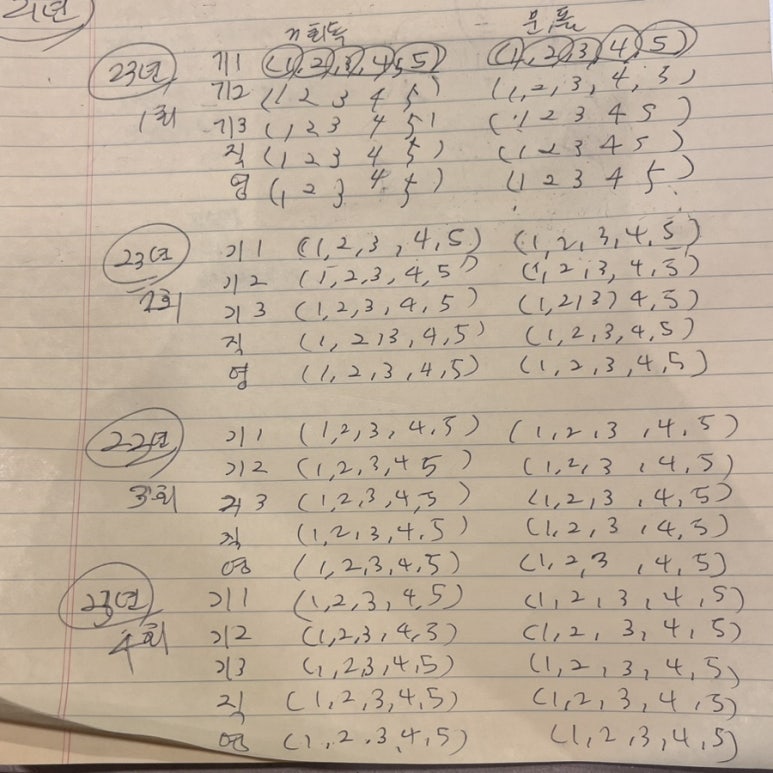 21년
기회독 문,풀
23년 기1 (1,2),3),4,5) (1,2,3,4,5)
기2 (1 2 3 4 5) (1,2,3,4,5)
1회 기3 (1,2 3 4 5) (1 2 3 4 5)
직 (1 2 3 4 5) (1 2 3 4 5)
영 (1, 2 3 4 5) (1 2 3 4 5)
23년 기1 (1,2,3,4,5) (1,2,3,4,5)
기2 (1,2,3,4,5) (1,2,3,4,5)
2회 기3 (1,2,3,4,5) (1,2,3,4,5)
직 (1,2,3,4,5) (1,2,3,4,5)
영 (1,2,3,4,5) (1,2,3,4,5)
22년 기1 (1,2,3,4,5) (1,2,3,4,5)
기2 (1,2,3,4 5) (1,2,3,4,5)
3회 기3 (1,2,3,4,5) (1,2,3,4,5)
직 (1,2,3,4,5) (1,2,3,4,5)
영 (1,2,3,4,5) (1,2,3,4,5)
23년 기1 (1,2,3,4,5) (1,2,3,4,5)
4회 기2 (1,2,3,4,5) (1,2,3,4,5)
기3 (1,2,3,4,5) (1,2,3,4,5)
직 (1,2,3,4,5) (1,2,3,4,5)
영 (1,2,3,4,5) (1,2,3,4,5)